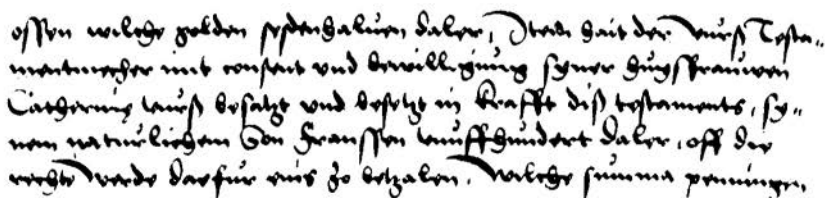 offen wilche golden sesdenhaluen daler, Item hait der vurß Testa„
mentmecher mit consent vnd bewilligung syner huysfrauwen
Catherinen vurß besatzt vnd besetzt in krafft diß testaments, sy„
nem naturlichem Son Franssen vunffhundert daler, off die
rechte werde daefur eins zo betzalen. Wilche summa penningen